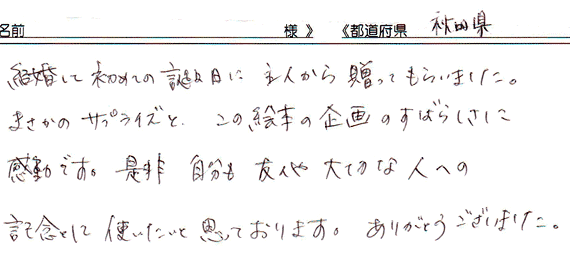 名前 様 》 《都道府県 秋田県
結婚して初めての誕生日に主人から贈ってもらいました。
まさかのサプライズと、この絵本の企画のすばらしさに
感動です。是非 自分も 友人や大切な人への
記念として使いたいと思っております。ありがとうございました。